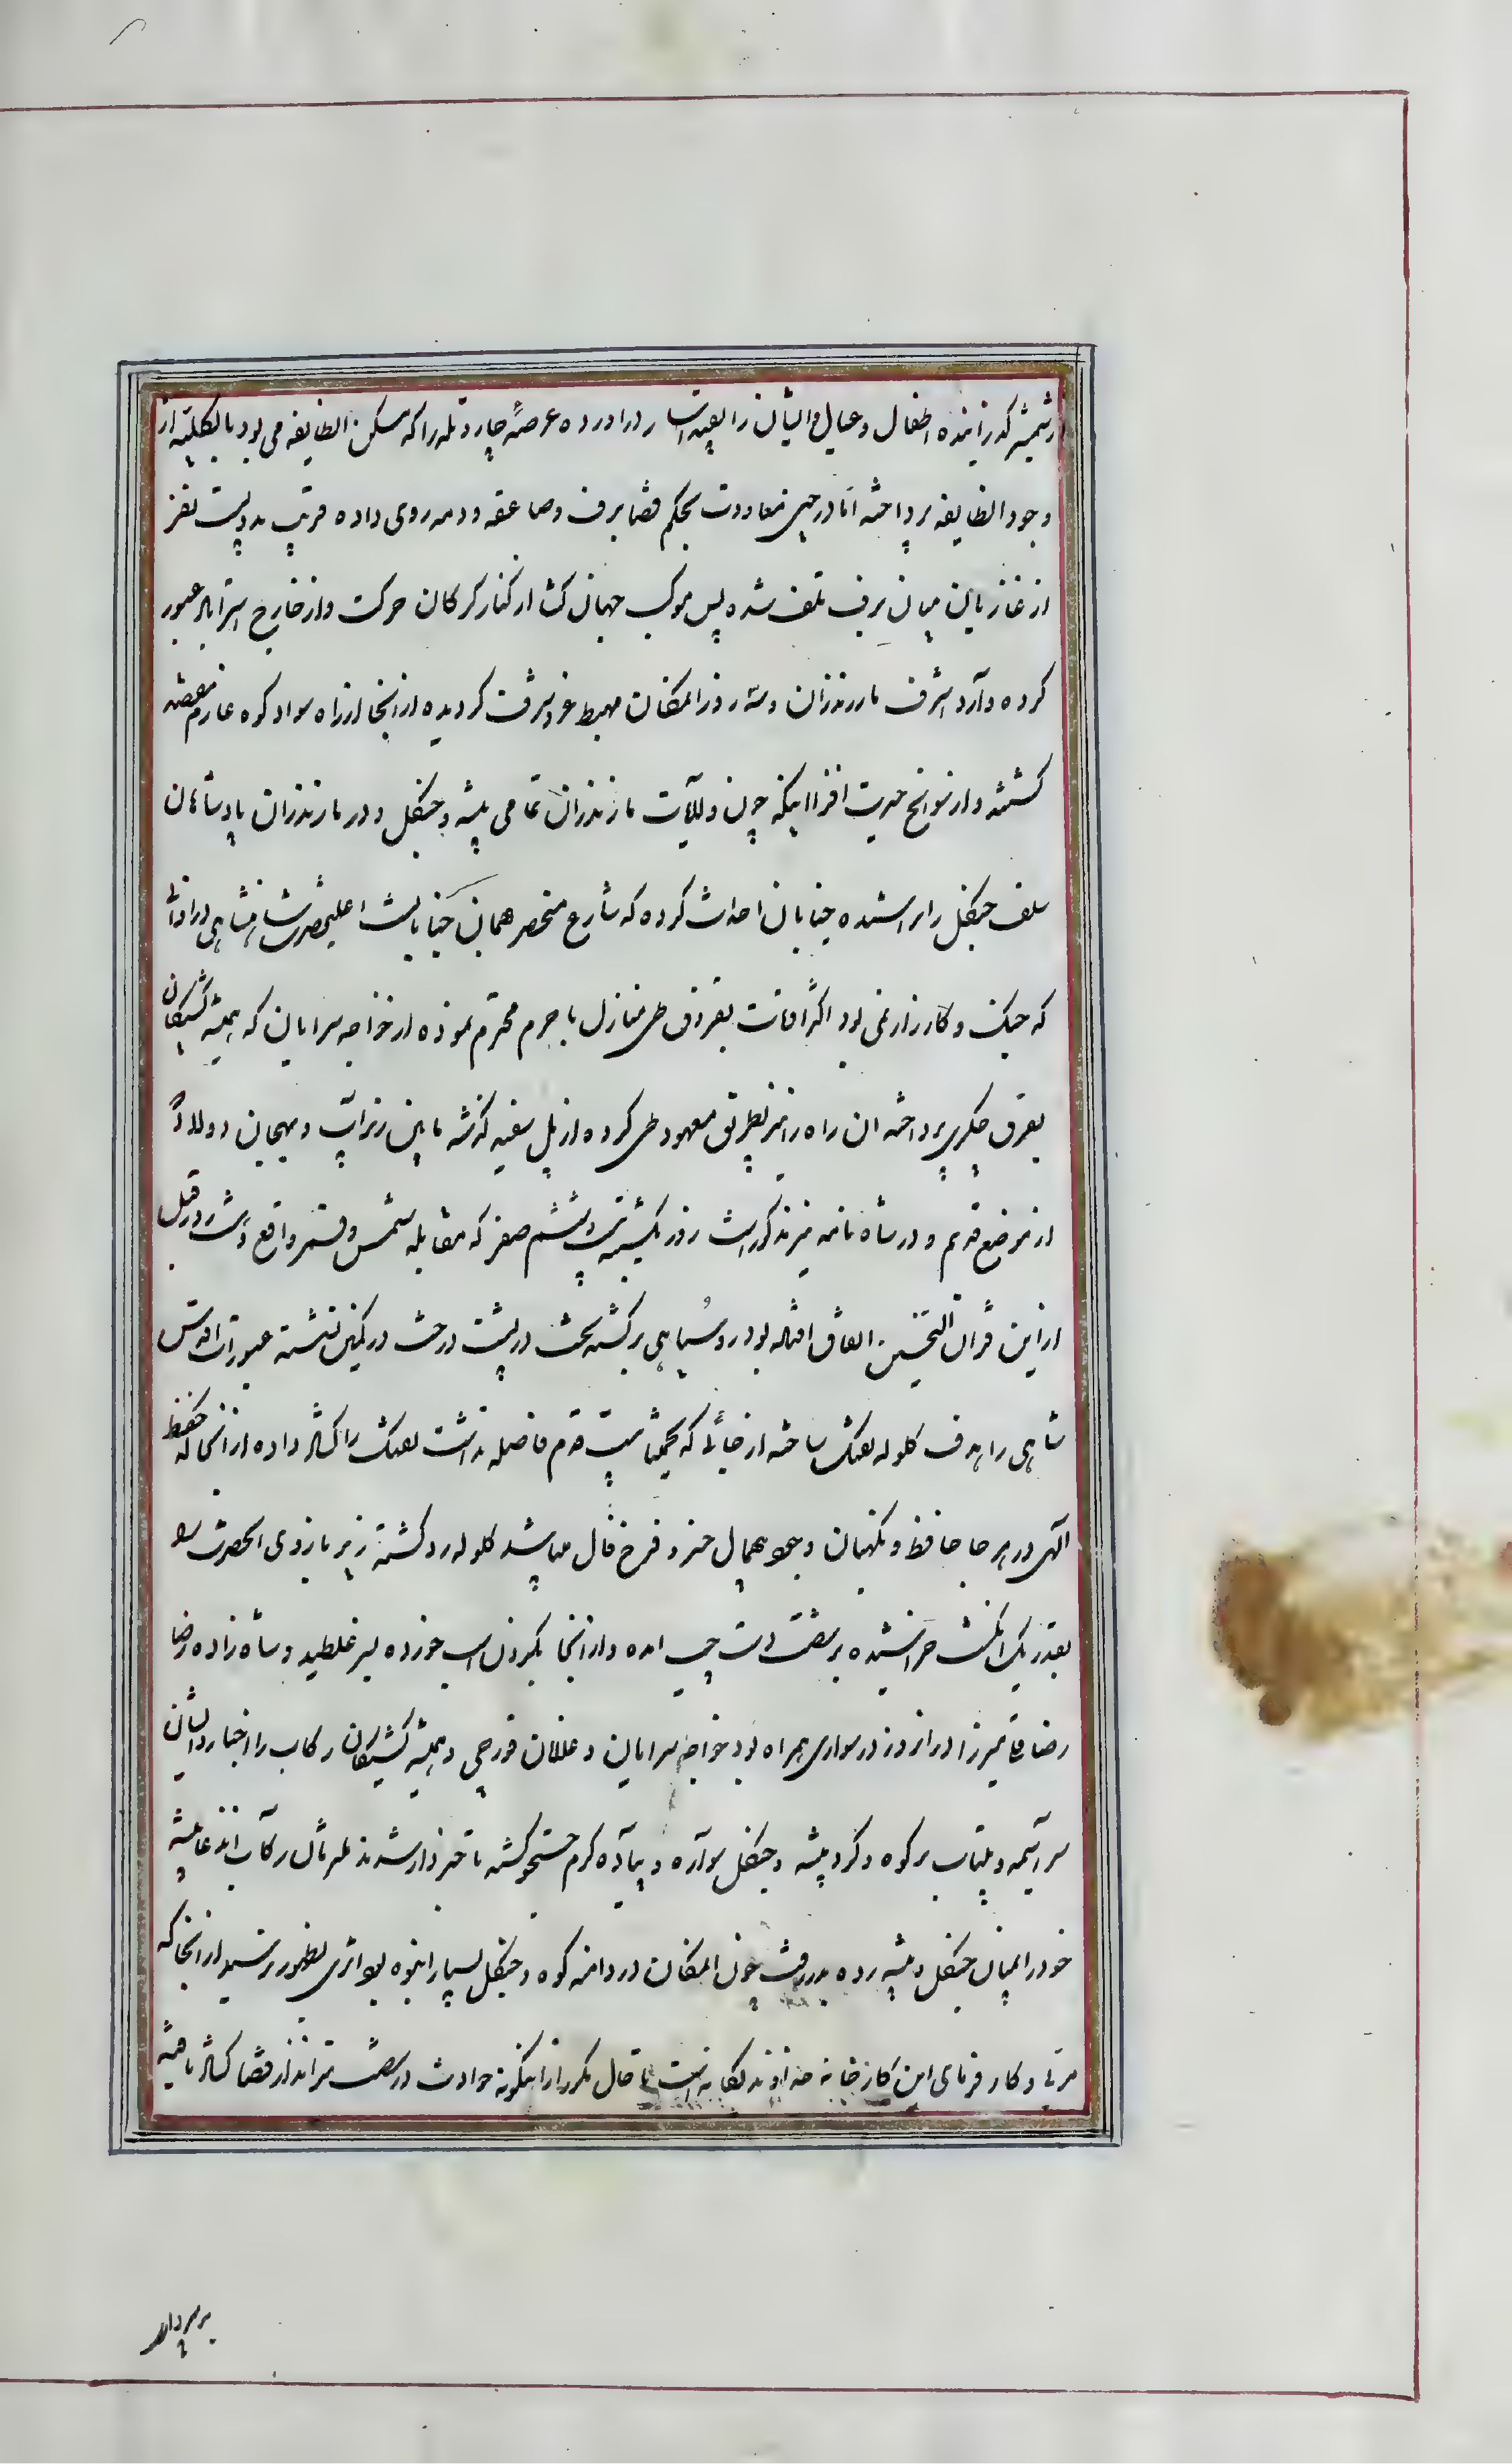 از شمشیر گذرانیده اطفال و عیال ایشان را بقید اسار درآورده عرصهٔ چاردقله را که مسکن انطایفه می بود بالکلیه از
وجود انطایفه پرداخته اما در حین معاودت بحکم قضا برف و صاعقه و دمه روی داده قریب بدویست نفر
از غازیان میان برف تلف شده پس موکب جهان گشا از کنار کرکان حرکت و از خارج استراباد عبور
کرده وارد اشرف مازندران و سه روز المکان مهبط عز و شرف کردیده از انجا از راه سواد کوه عازم مقصد
کشتند و از سوانح حیرت افزا اینکه چون ولایت مازندران تمامی بیشه و جنکل و در مازندران پادشاهان
سلف جنکل را بر اشیده خیابان احداث کرده که شارع منحصر بهمان خیابانست اعلیحضرت شاهنشاهی در اوقاتی
که جنک و کارزار نمی بود اکثر اوقات بقرق طی منازل با حرم محترم نموده از خواجه سرایان که همیشه کشیکان
بقرق چکری پرداخته ان راه را نیز بطریق معهود طی کرده از پل سفید کذشته مابین زیراب و بهجان دولاد
از موضع قدیم و در شاه نامه نیز مذکور است روز یکشنبه بیست و ششم صفر که مقابله شمس و قمر واقع و شب در قبل
از این قران النحسین اتفاق افتاده بود رو سیاهی برکشته بخت در پشت درخت در کمین نشسته عبور ذات اقدس
شاهی را هدف کلوله تفنک ساخته از جائی که تخمینا بیست قدم فاصله نداشت تفنک را کشاد داده از انجا که حفظ
الهی در هر جا حافظ و نکهبان وجود همال خیر و فرخ فال میباشد کلوله رد کشته زیر بازوی انحضرت را
بقدر یک انکشت خراشیده بر شصت دست چپ امده و از انجا بکردن اسب خورده بسر غلطید و شاه زاده رضا
رضا قلی میرزا در انروز در سواری همراه بود خواجه سرایان و غلامان قورچی و همیشه کشیکان رکاب را اخبار و ایشان
سراسیمه و بیتاب بر کوه و کرد بیشه و جنکل سواره و پیاده کرم جستجو کشته تا خبردار شدند ملتزمان رکاب انداز عاقبه
خود را بمیان جنکل و بیشه زده بدر رفت چون المکان در دامنه کوه و جنکل بسیار انبوه بود اثری بظهور نرسید از انجا که
مربی و کار فرمای این کارخانه خداوند یکانه است تا حال مکرر از اینکونه حوادث در شصت تیر انداز قضا کشاد یافته